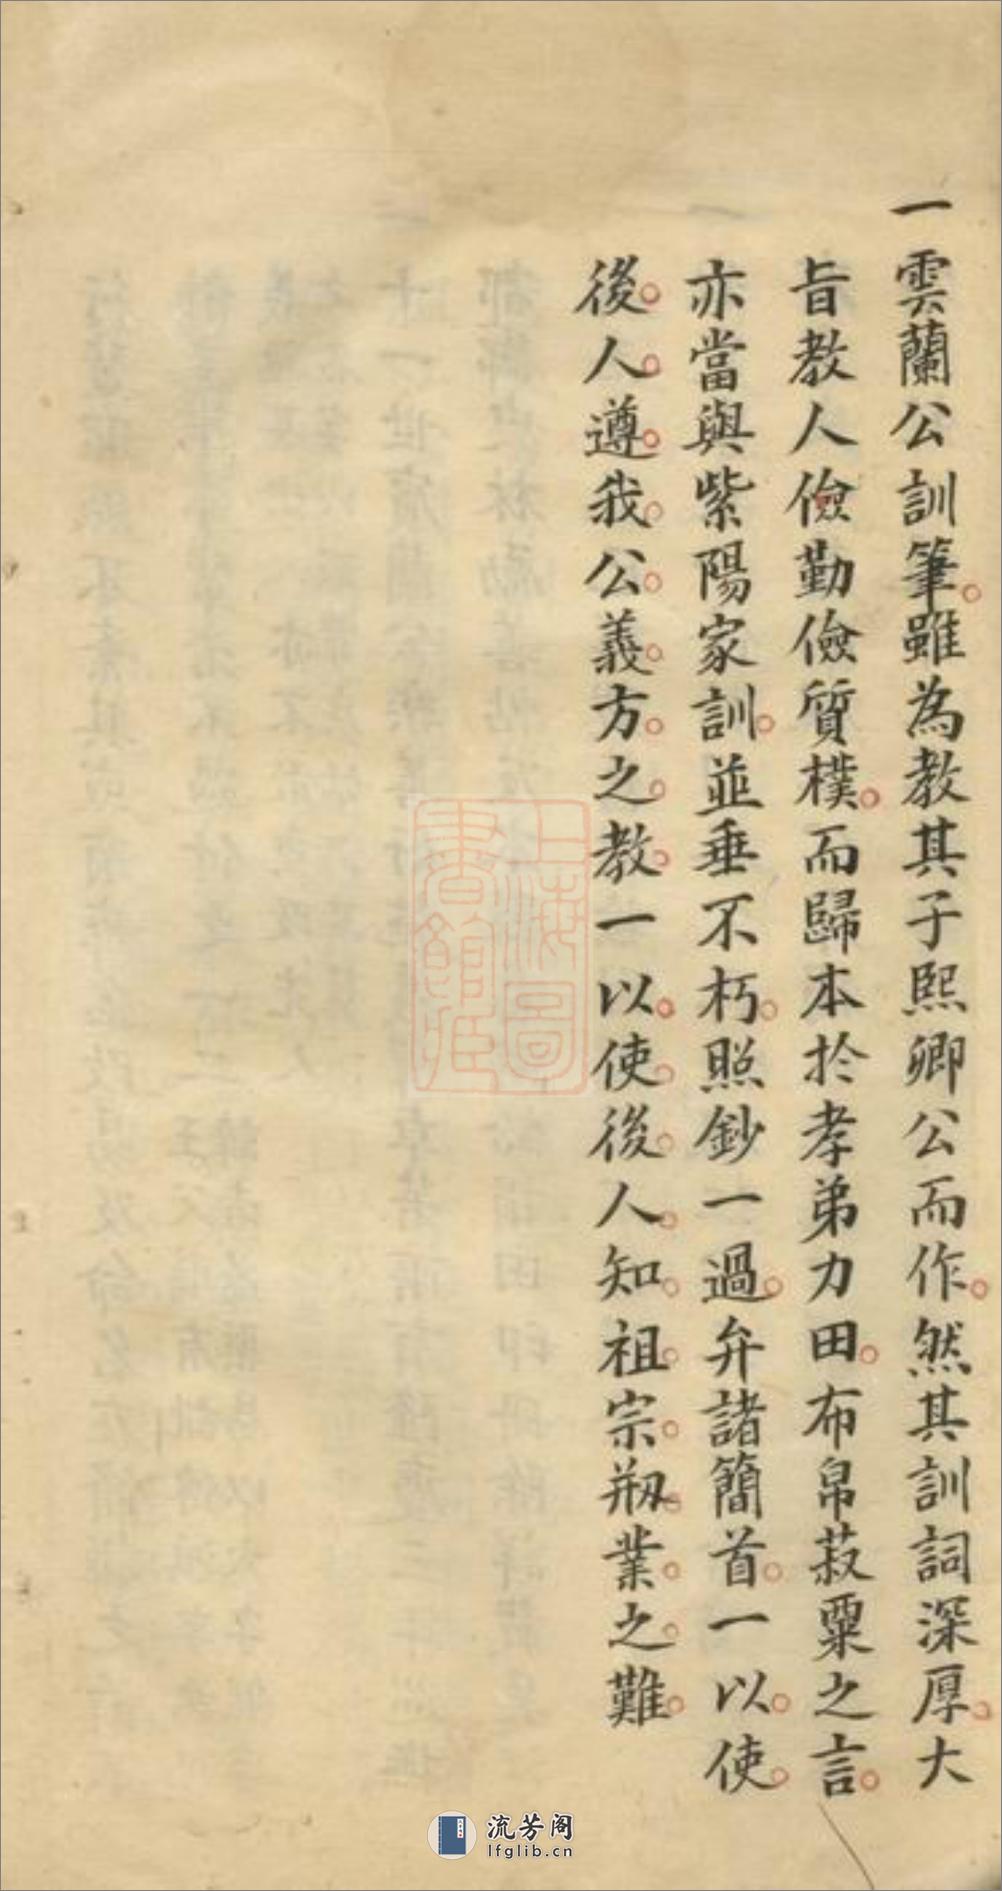 一雲蘭公訓筆雖為教其子熙卿公而作然其訓詞深厚大
旨教人儉勤儉質樸而歸本於孝弟力田布帛菽粟之言
亦當與紫陽家訓並垂不朽照鈔一過弁諸簡首一以使
後人遵我公義方之教一以使後人知祖宗剏業之難
上海圖
書館藏
流芳阁
lfglib.cn